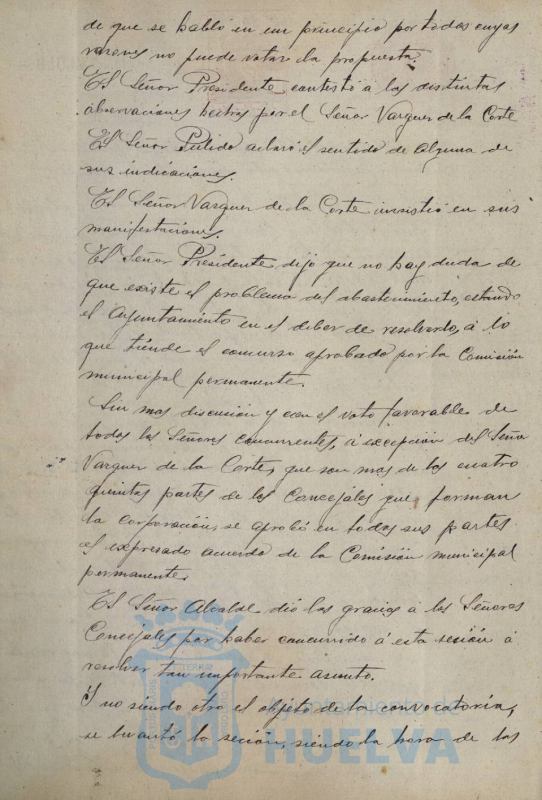 de que se habló en un principio por todas cuyas
razones no puede votar la propuesta.
El Señor Presidente contestó a las distintas
observaciones hechas por el Señor Vazquez de la Corte
El Señor Pulido aclaró el sentido de alguna de
sus indicaciones.
El Señor Vazquez de la Corte insistió en sus
manifestaciones.
El Señor Presidente dijo que no hay duda de
que existe el problema del abastecimiento, estando
el Ayuntamiento en el deber de resolverlo, á lo
que tiende el concurso aprobado por la Comisión
municipal permanente.
Sin mas discusión y con el voto favorable de
todos los Señores concurrentes, á excepción del Señor
Vazquez de la Corte, que son mas de las cuatro
quintas partes de los Concejales que forman
la corporación, se aprobó en todas sus partes
el expresado acuerdo de la Comisión municipal
permanente.
El Señor Alcalde dió las gracias a los Señores
Concejales por haber concurrido á esta sesión á
resolver tan importante asunto.
Y no siendo otro el objeto de la convocatoria,
se levantó la sesión, siendo la hora de las
Ayuntamiento de
HUELVA